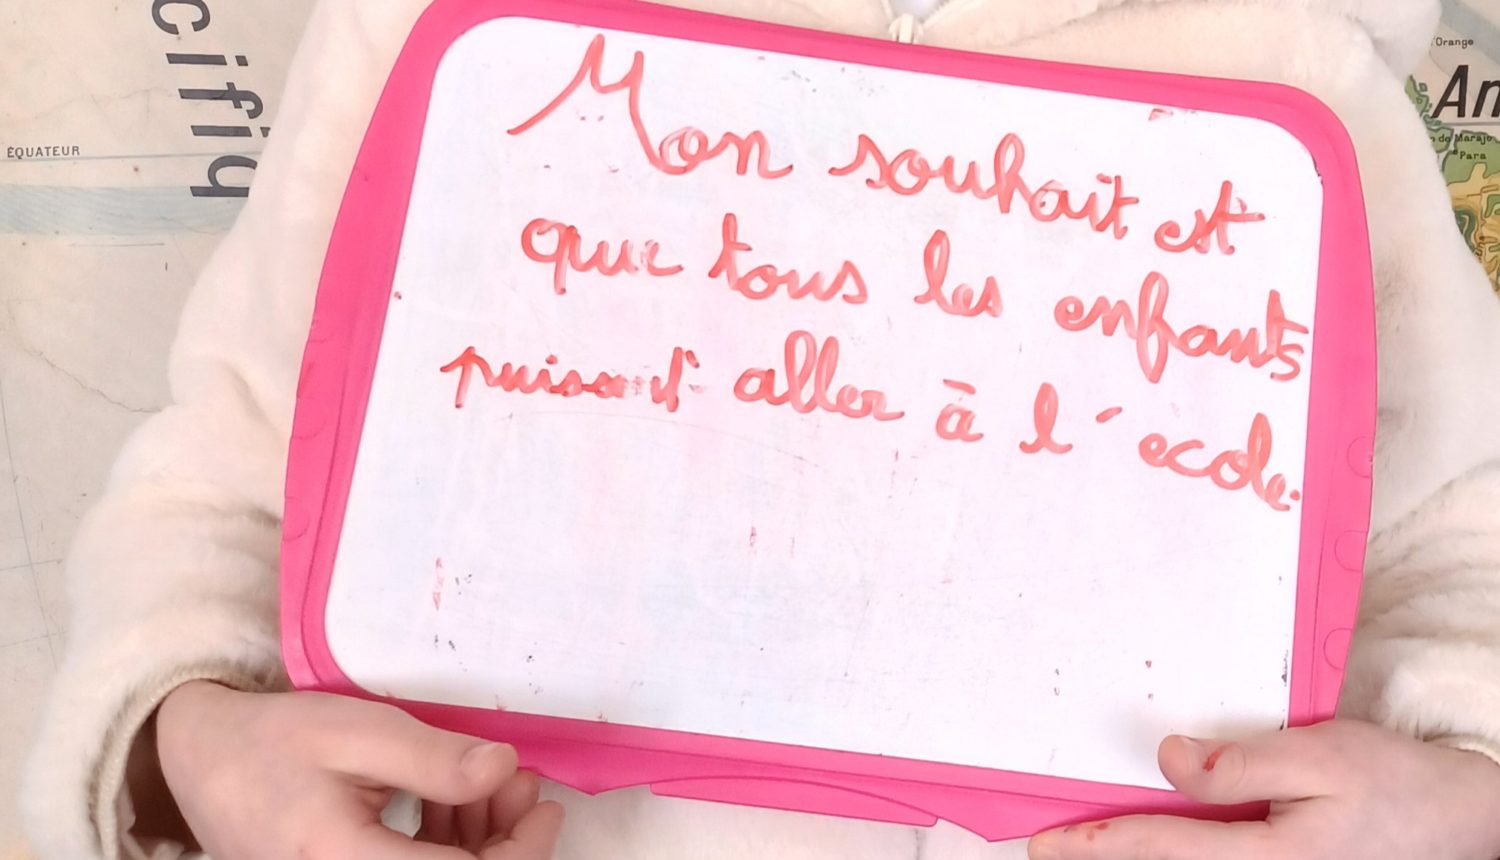 cifiq
ÉQUATEUR
d'Orange
Am
de Marajo
Para
Mon souhait est
que tous les enfants
puissent aller à l'ecole.